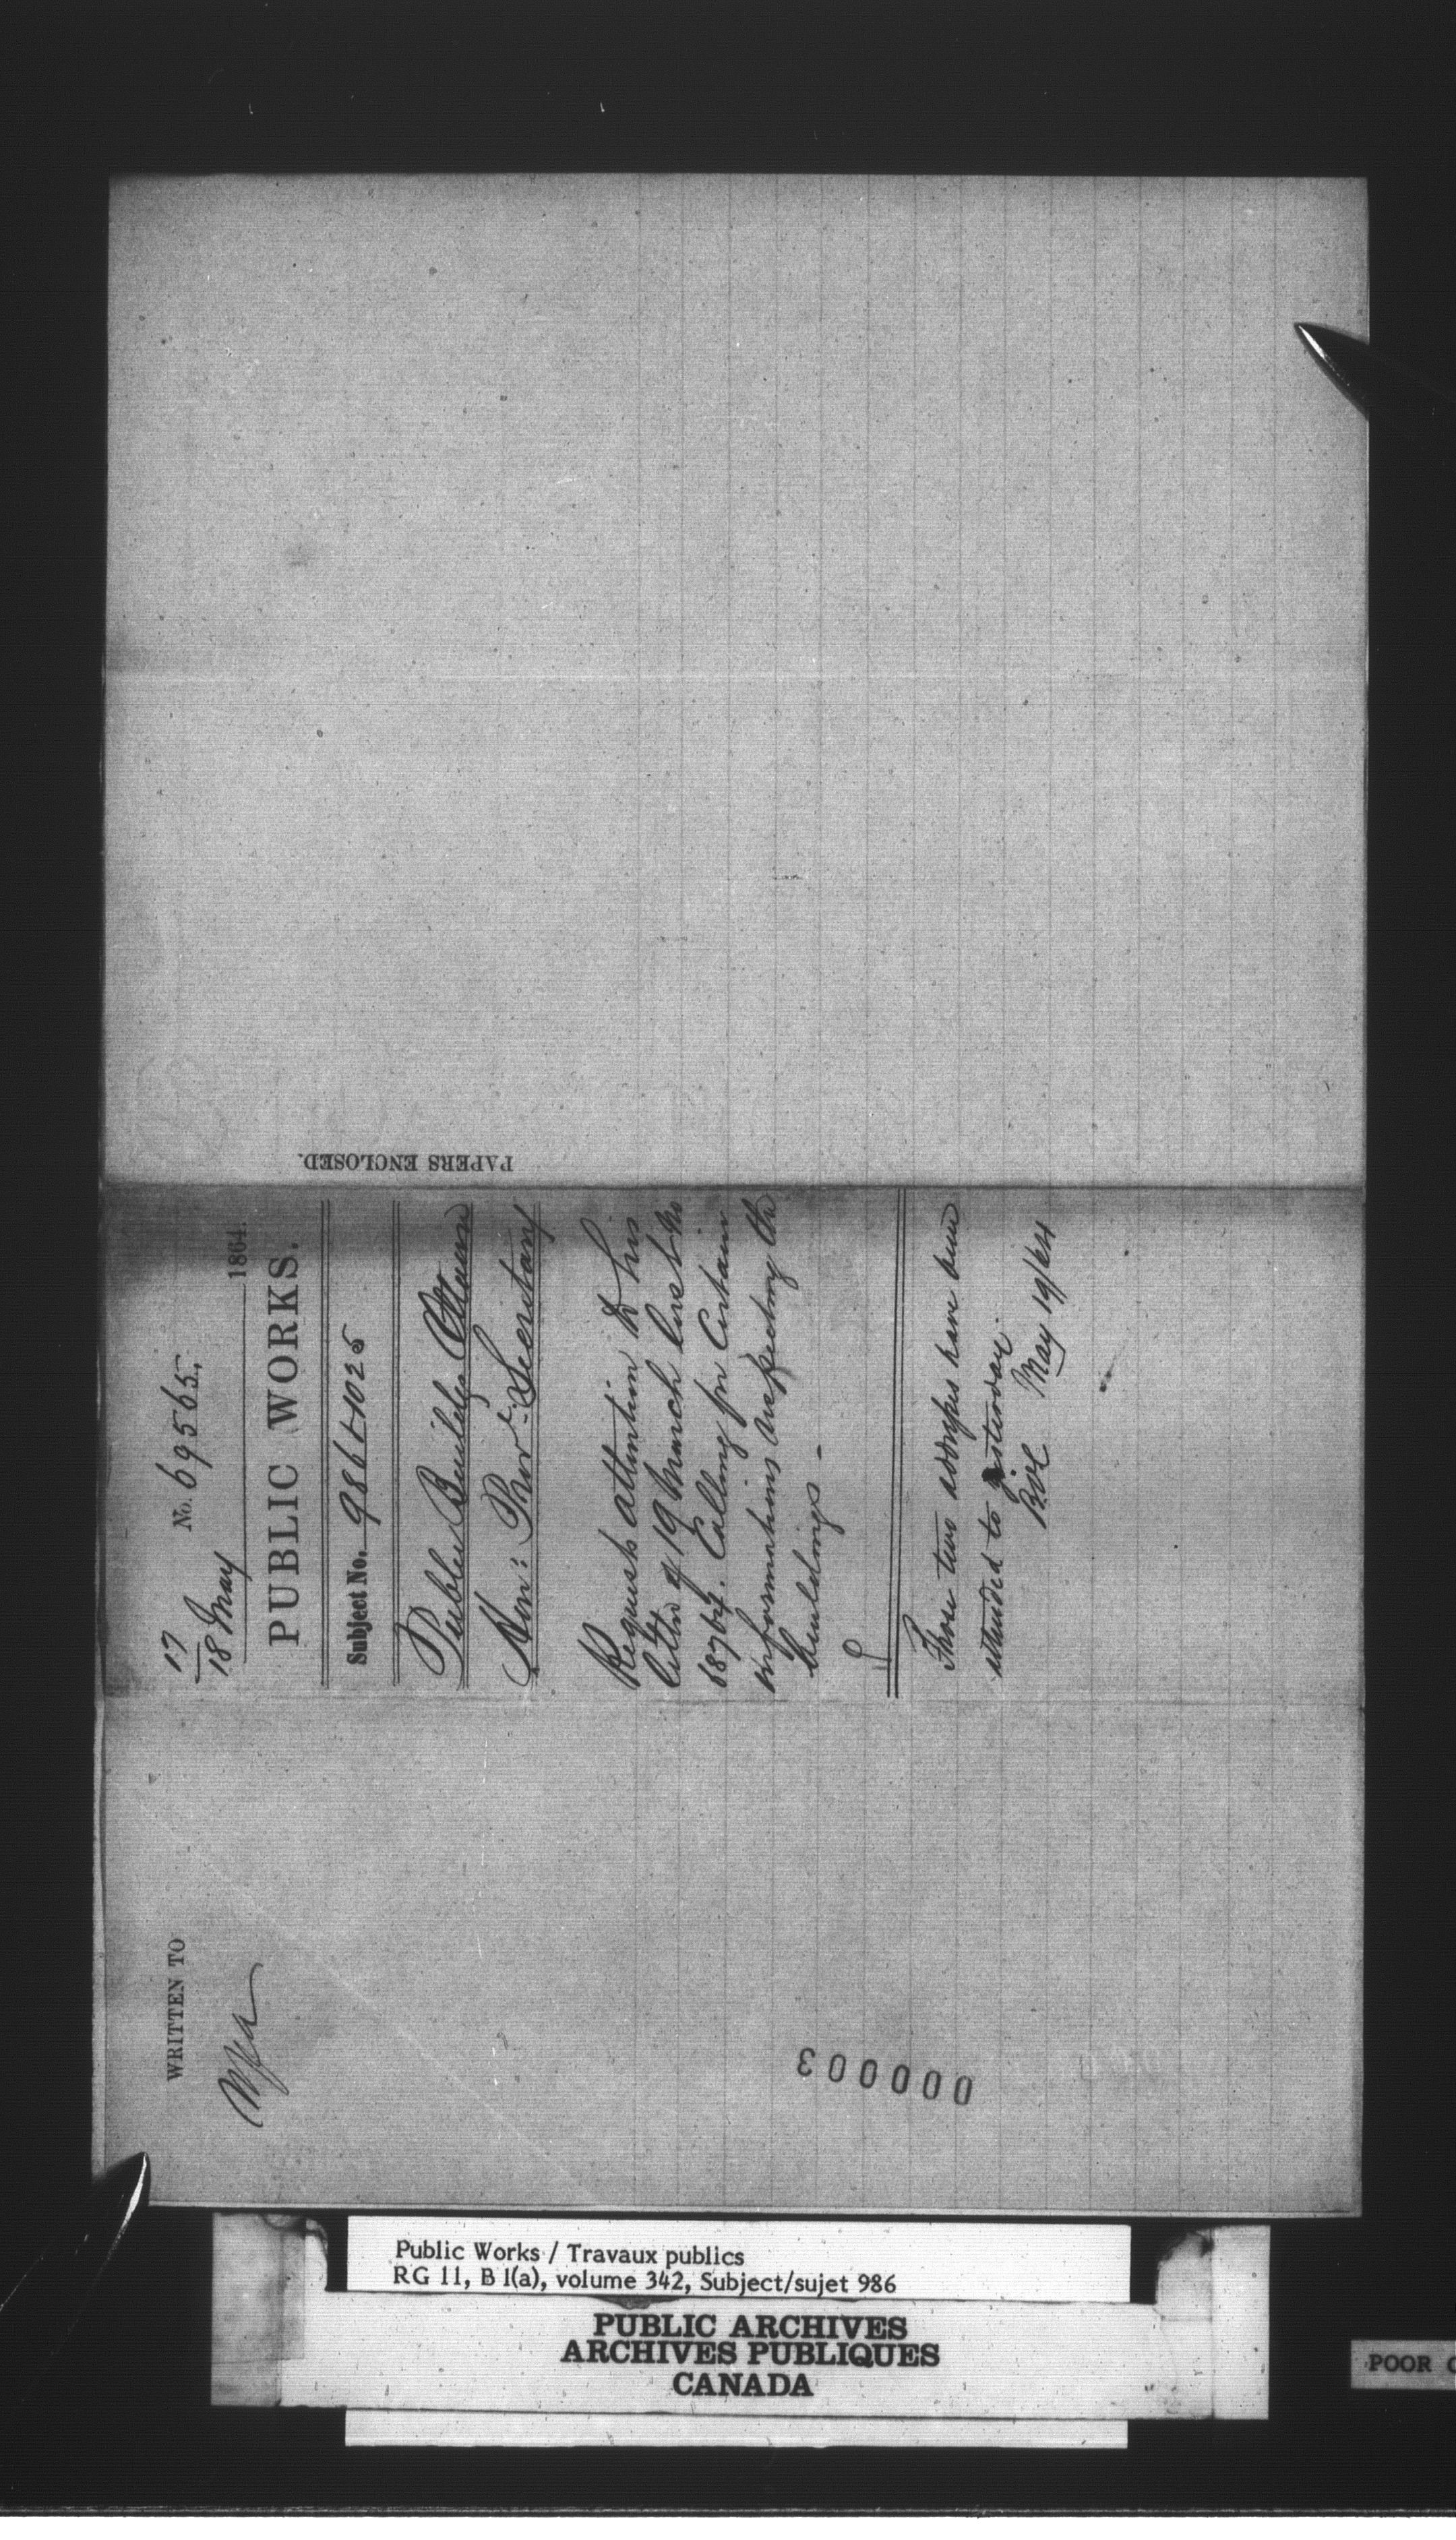 PAPERS ENCLOSED.
17
18 May
No. 69565.
1864.
PUBLIC WORKS.
Subject No. 986 & 1025
Public Buildgs Ottawa
Hon: Prov: Secretary
Requests attention to his
letter of 19 March last No
68764. Calling for Certain
informations respecting the
buildings -
Those two addresses have been
attended to yesterday.
May 19/64
WRITTEN TO
000003
Public Works / Travaux publics
RG 11, B 1(a), volume 342, Subject/sujet 986
PUBLIC ARCHIVES
ARCHIVES PUBLIQUES
CANADA
POOR